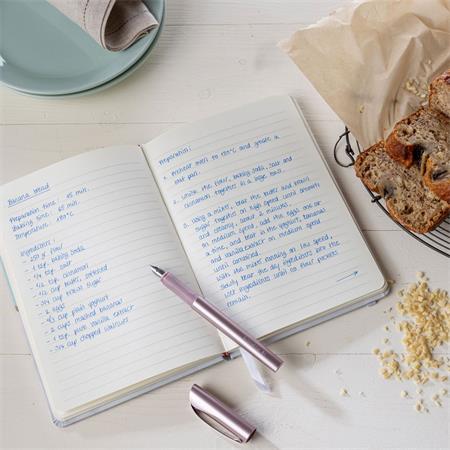 Banana bread
Preparation time: 15 min.
Baking time: 65 min.
Temperature: 175°C
Ingredients:
- 250 gr flour
- 1 tsp. baking soda
- 1/4 tsp. salt
- 1/2 tsp. cinnamon
- 1/2 cup butter, softened
- 3/4 cup brown sugar
- 2 eggs
- 1/3 cup plain yoghurt
- 2 cups mashed bananas
- 1 tsp. pure vanilla extract
- 3/4 cup chopped walnuts
Preparation:
1. Preheat oven to 175°C and grease a
loaf pan.
2. Whisk the flour, baking soda, salt and
cinnamon together in a large bowl.
3. Using a mixer, beat the butter and brown
sugar together on high speed until smooth
and creamy, about 2 minutes.
On medium speed, add the eggs one at
a time, and beat in the yoghurt, bananas
and vanilla extract on medium speed
until combined.
With the mixer running on low speed,
slowly beat the dry ingredients into the
wet ingredients until no flour pockets
remain.